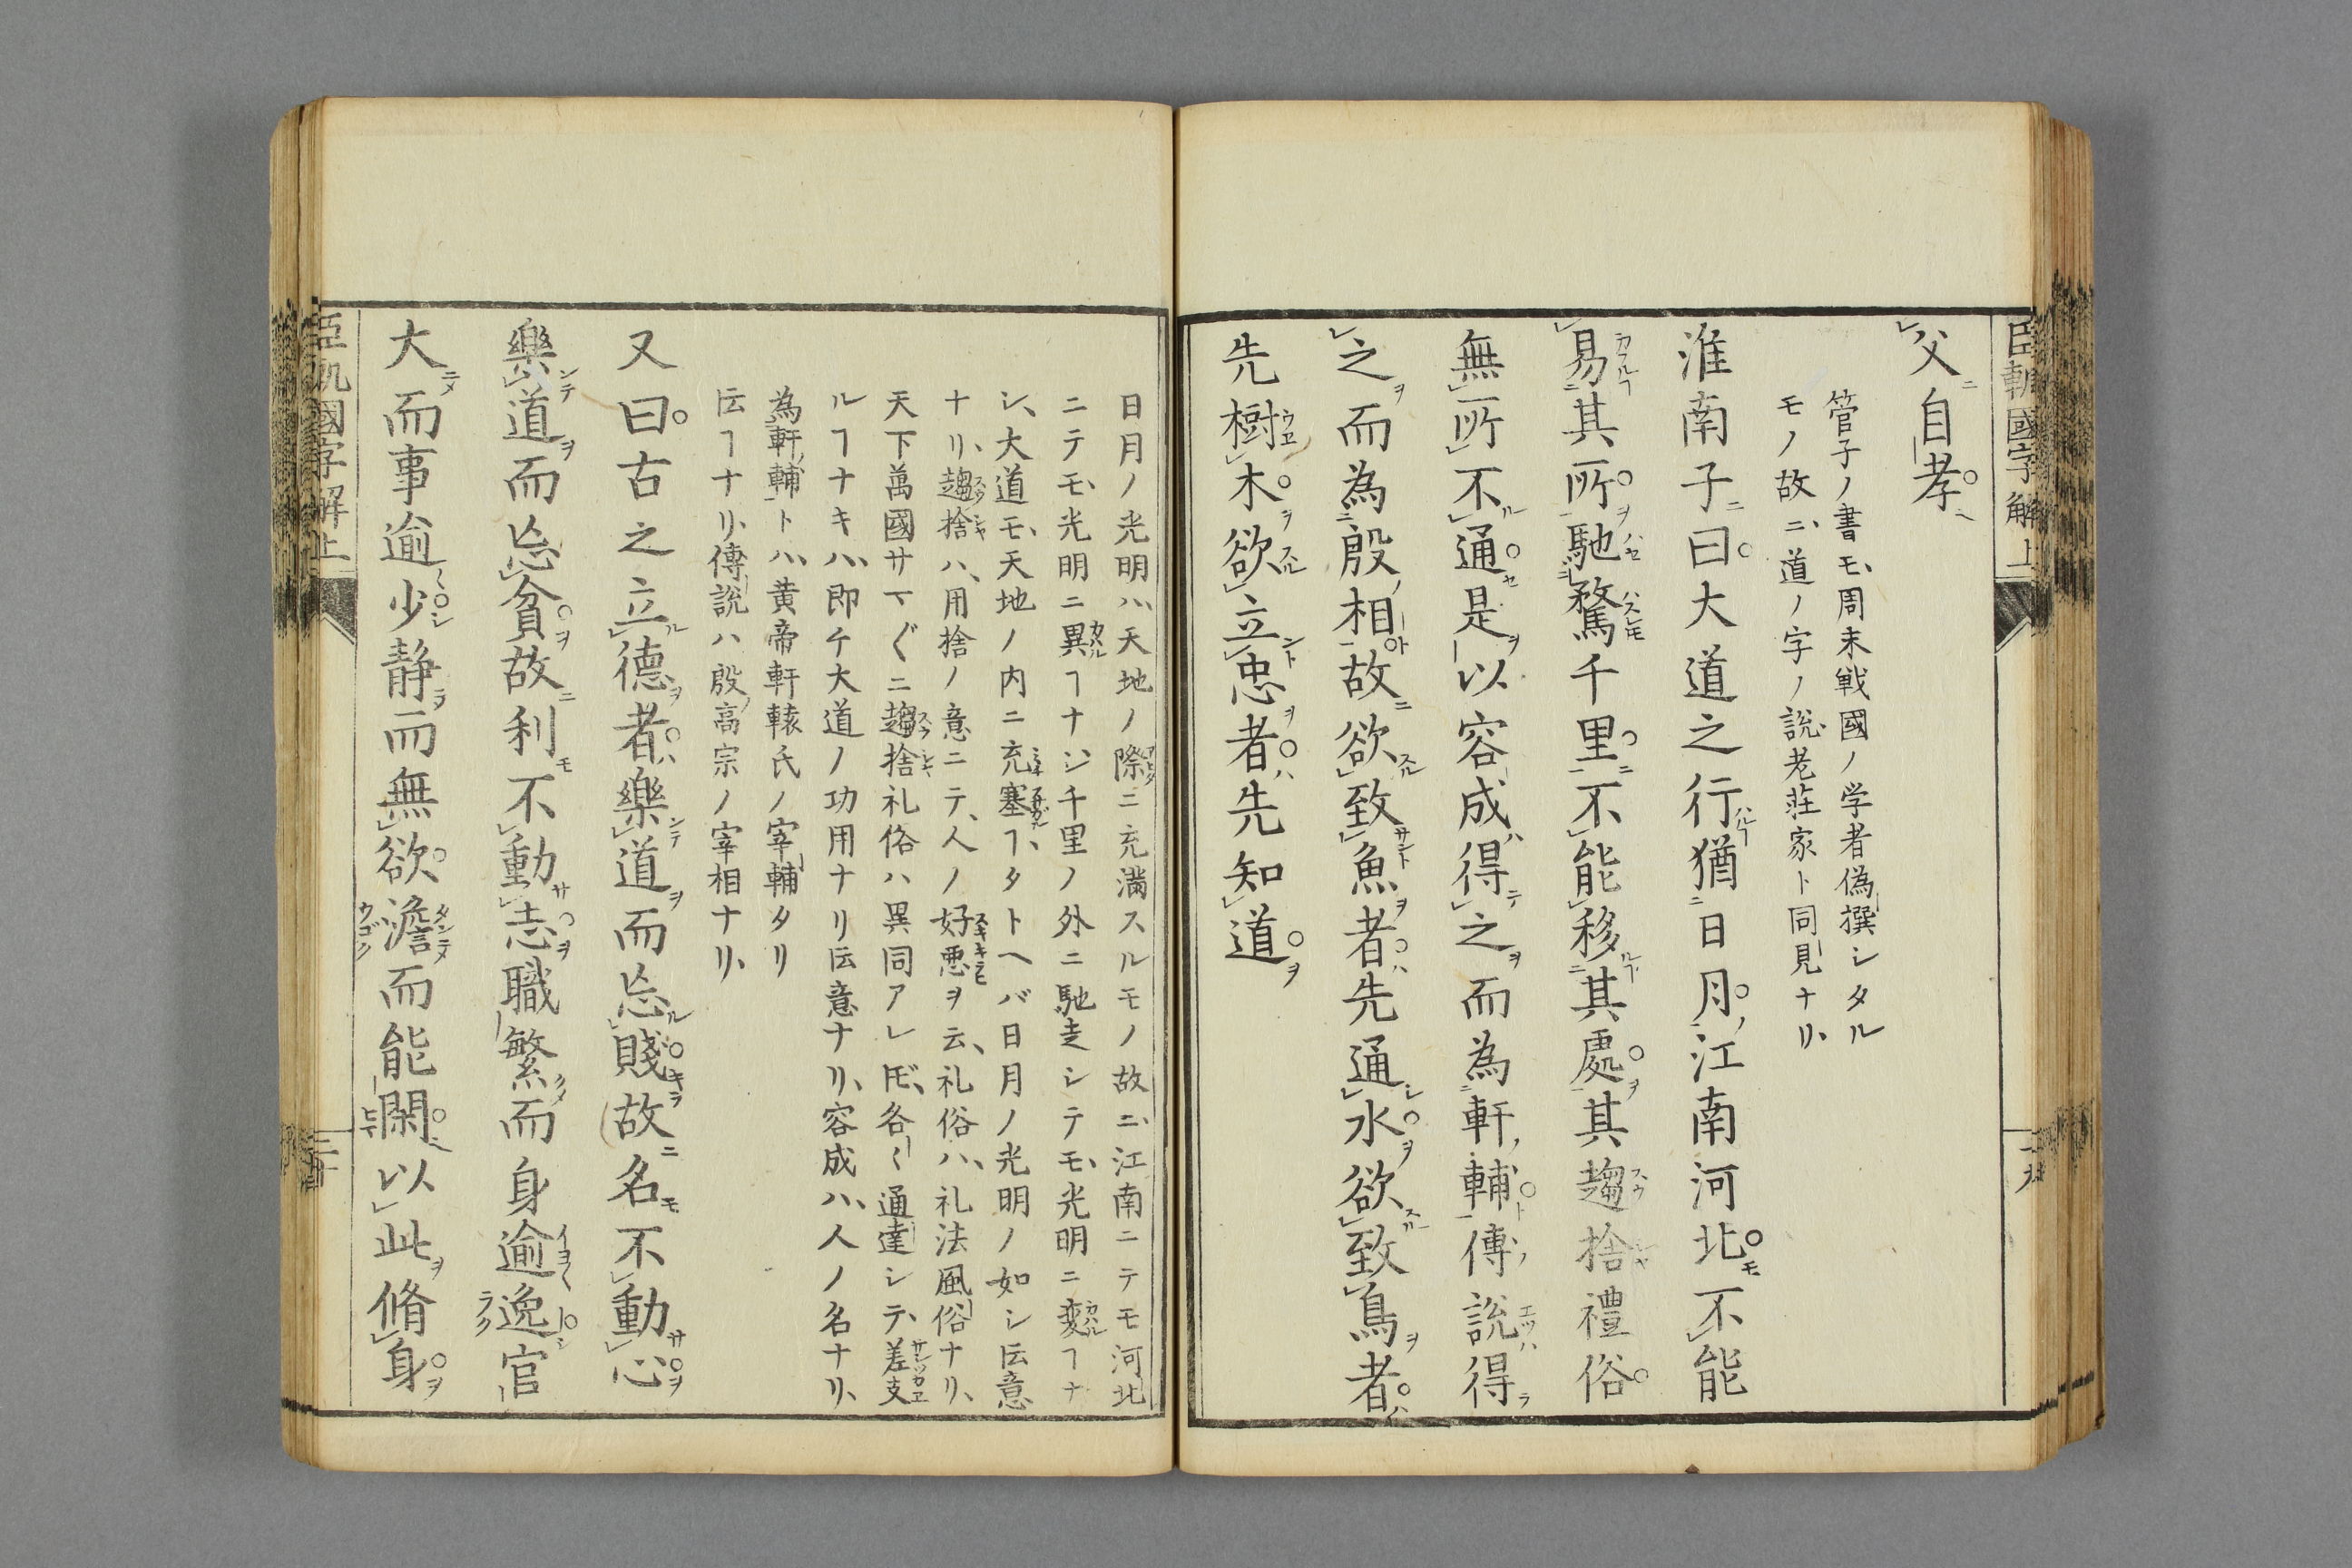 臣軌國字解上
父自孝
管子ノ書モ、周末戦國ノ学者偽撰シタル
モノ故ニ、道ノ字ノ説老莊家ト同見ナリ、
淮南子曰大道之行猶日月江南河北不能
易其所馳騖千里不能移其處其趨捨禮俗
無所不通是以容成得之而為軒輔傳説得
之而為殷相故欲致魚者先通水欲致鳥者
先樹木欲立忠者先知道
日月ノ光明ハ、天地ノ際ニ充満スルモノ故ニ、江南ニテモ河北
ニテモ、光明ニ異ヿナシ千里ノ外ニ馳走シテモ、光明ニ変ヿナ
シ、大道モ、天地ノ内ニ充塞ヿ、タトヘバ日月ノ光明ノ如シ伝意
ナリ、趨捨ハ、用捨ノ意ニテ、人ノ好悪ヲ云、礼俗ハ、礼法風俗ナリ、
天下萬國サマ〲ニ趨捨礼俗ハ異同アレ𪜈、各〻通達シテ、差支
ルヿナキハ、即チ大道ノ功用ナリ伝意ナリ、容成ハ、人ノ名ナリ、
為軒輔トハ、黄帝軒轅氏ノ宰輔タリ
伝ヿナリ、傳説ハ殷高宗ノ宰相ナリ、
又曰古之立德者樂道而忘賤故名不動心
樂道而忘貧故利不動志職繁而身逾逸官
大而事逾少静而無欲澹而能閑以此脩身
臣軌國字解上
三十